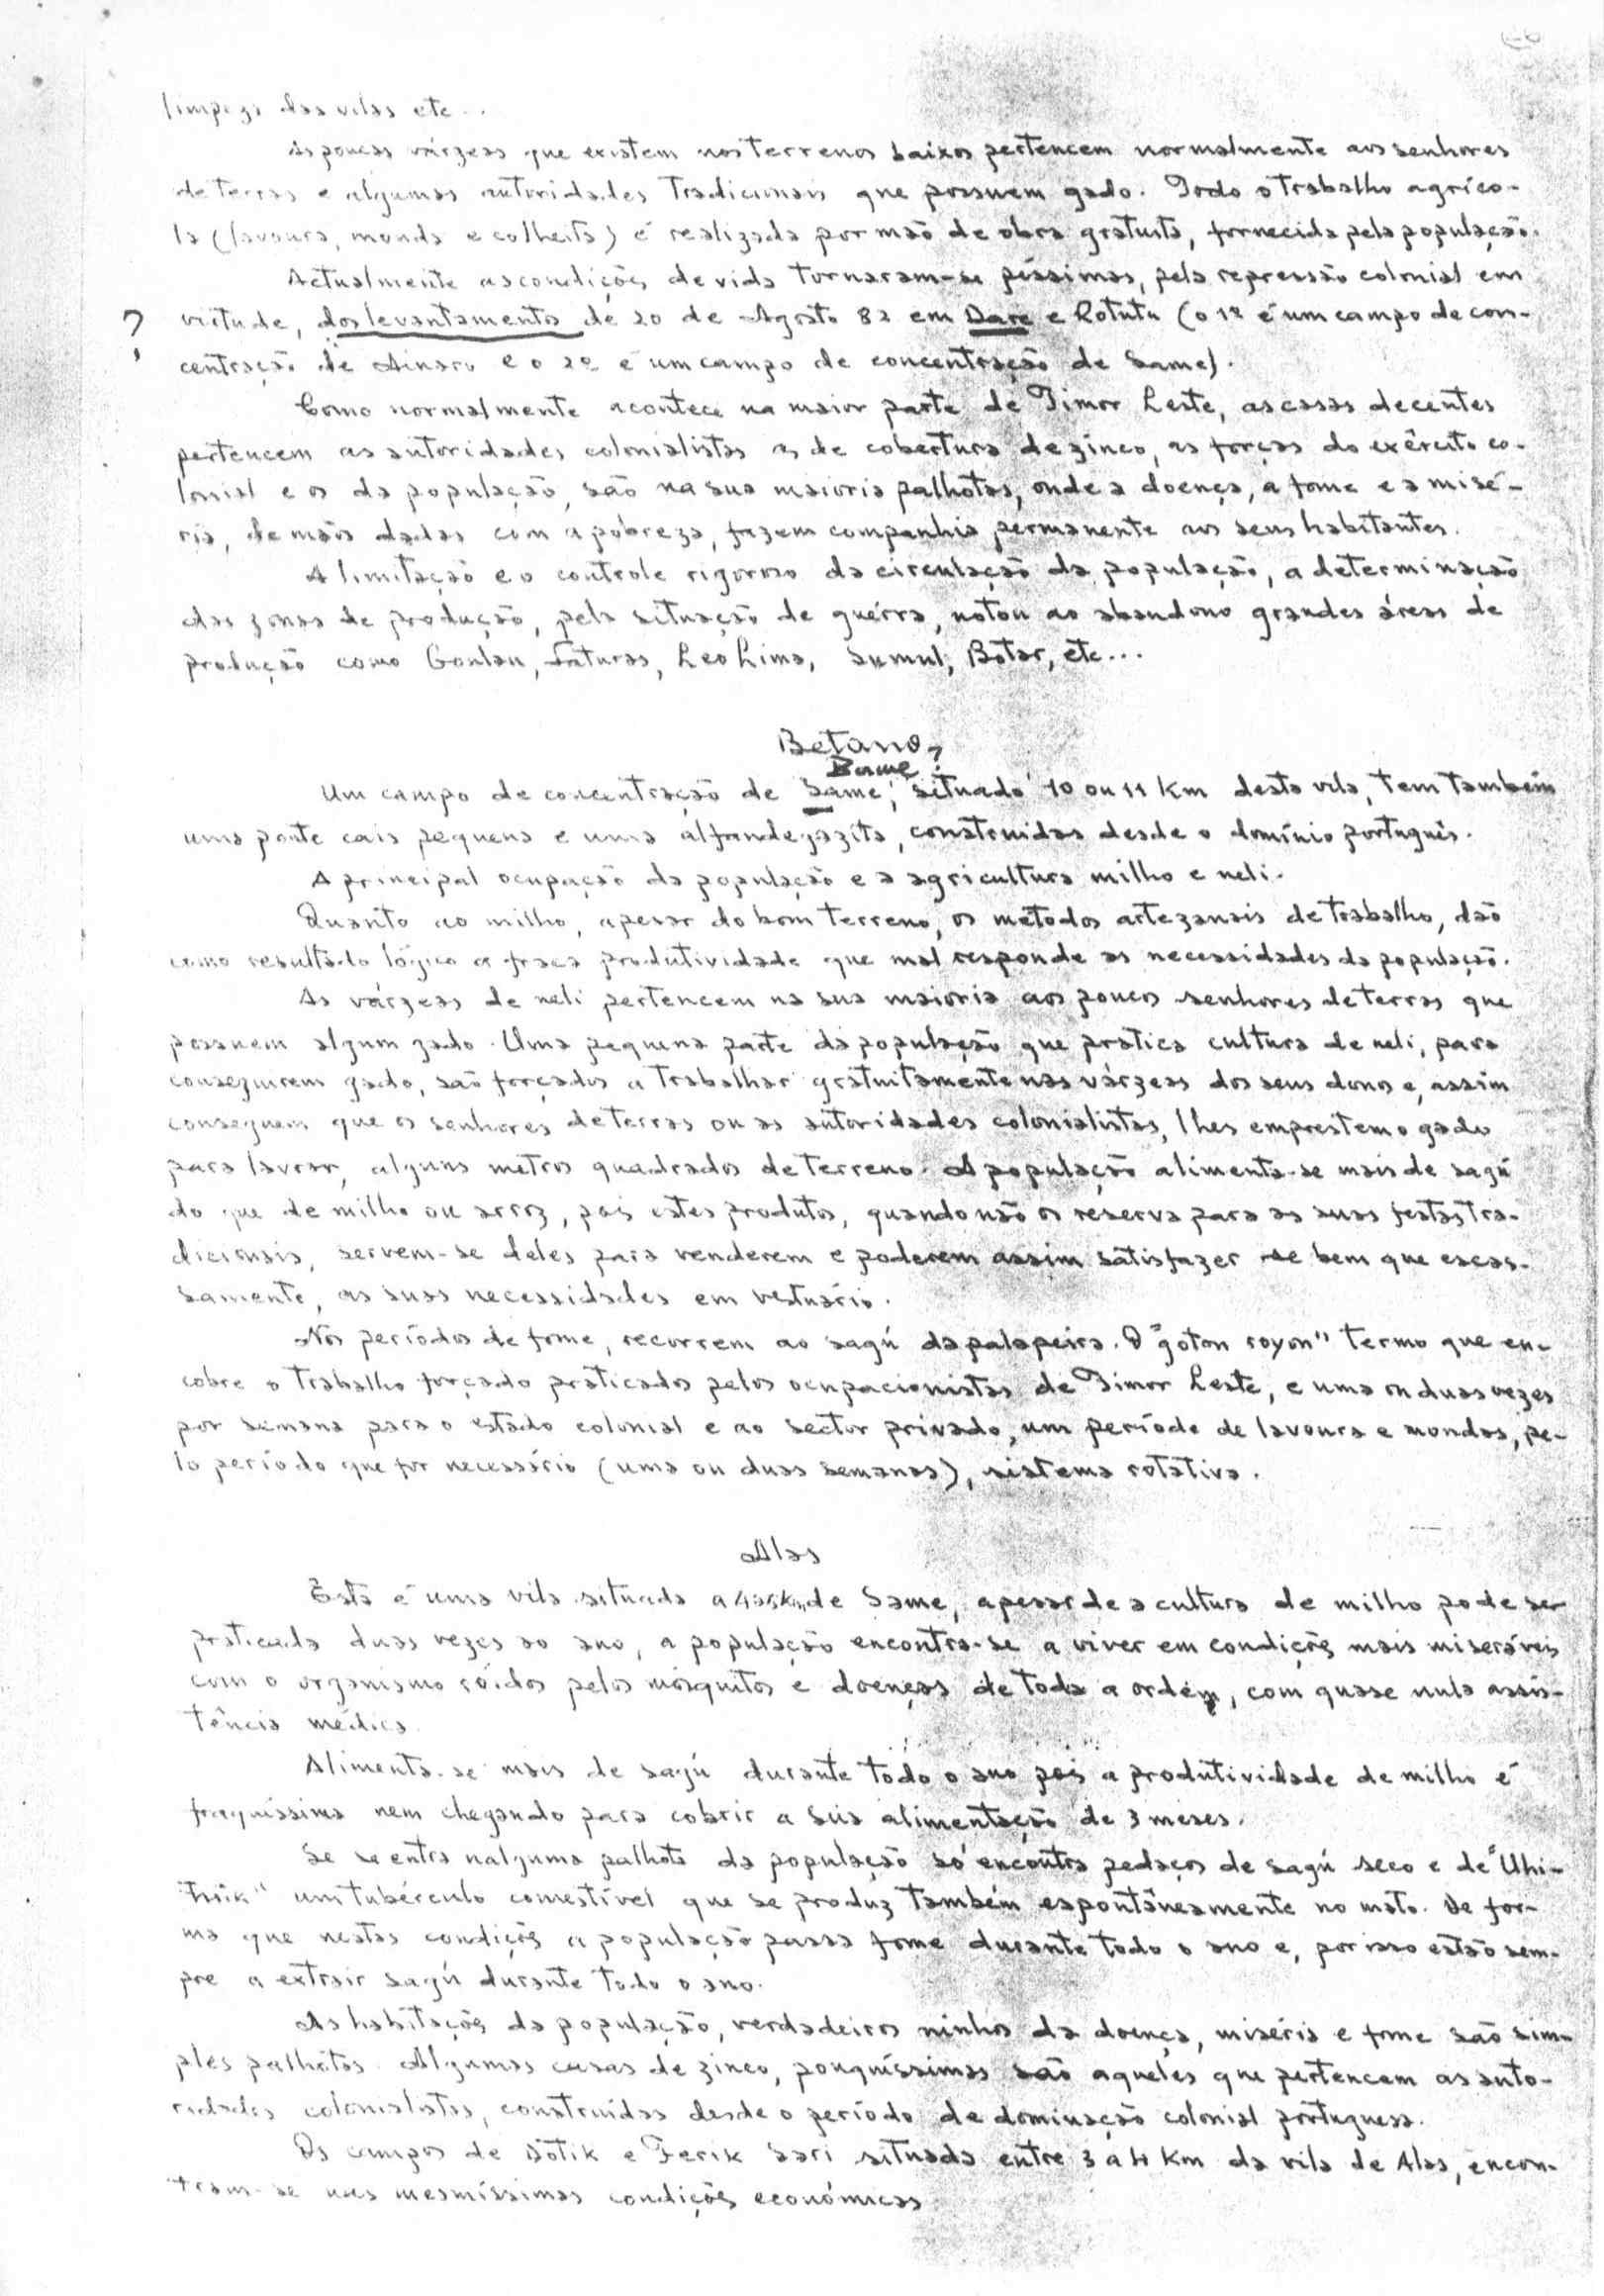 limpeza das vilas etc...
As poucas várzeas que existem nos terrenos baixos pertencem normalmente aos senhores
de terras e algumas autoridades tradicionais que possuem gado. Todo o trabalho agríco-
la (lavoura, monda e colheita) é realizada por mão de obra gratuita, fornecida pela população.
Actualmente as condições de vida tornaram-se péssimas, pela repressão colonial em
? virtude, dos levantamentos de 20 de Agosto 82 em Dare e Rotutu (o 1º é um campo de con-
centração de Ainaro e o 2º é um campo de concentração de Same).
Como normalmente acontece na maior parte de Timor Leste, as casas decentes
pertencem as autoridades colonialistas as de cobertura de zinco, as forças do exército co-
lonial e os da população, são na sua maioria palhotas, onde a doença, a fome e a misé-
ria, de mãos dadas com a pobreza, fazem companhia permanente aos seus habitantes.
A limitação e o controle rigoroso da circulação da população, a determinação
das zonas de produção, pela situação de guérra, votou ao abandono grandes áreas de
produção como Goulau, Faturas, Leo Lima, Sumul, Botar, etc...
Betano
Bame?
Um campo de concentração de Same, situado 10 ou 11 Km desta vila, tem também
uma ponte cais pequena e uma alfandegazita, construidas desde o domínio português.
A principal ocupação da população e a agricultura milho e neli.
Quanto ao milho, apesar do bom terreno, os métodos artezanais de trabalho, dão
como resultado lógico a fraca produtividade que mal responde as necessidades da população.
As várzeas de neli pertencem na sua maioria aos poucos senhores de terras que
possuem algum gado. Uma pequena parte da população que pratica cultura de neli, para
conseguirem gado, são forçados a trabalhar gratuitamente nas várzeas dos seus donos e, assim
conseguem que os senhores de terras ou as autoridades colonialistas, lhes emprestem o gado
para lavrar, alguns metros quadrados de terreno. A população alimenta-se mais de sagú
do que de milho ou arroz, pois estes produtos, quando não os reserva para as suas festas tra-
dicionais, servem-se deles para venderem e poderem assim satisfazer se bem que escas-
samente, as suas necessidades em vestuário.
Nos períodos de fome, recorrem ao sagú da palapeira. O "goton royon" termo que en-
cobre o trabalho forçado praticados pelos ocupacionistas de Timor Leste, e uma ou duas vezes
por semana para o estado colonial e ao sector privado, um període de lavoura e mondas, pe-
lo período que for necessário (uma ou duas semanas), sistema rotativa.
Alas
Esta é uma vila situada a 4 a 5 Km de Same, apesar de a cultura de milho pode ser
praticada duas vezes ao ano, a população encontra-se a viver em condições mais miseráveis
com o organismo róidos pelos mosquitos e doenças de toda a ordem, com quase nula assis-
tência médica.
Alimenta-se mais de sagú durante todo o ano pois a produtividade de milho é
fraquíssima nem chegando para cobrir a sua alimentação de 3 meses.
Se se entra nalguma palhota da população só encontra pedaços de sagú seco e de "Uhi-
" um tubérculo comestível que se produz também espontâneamente no mato. De for-
ma que nestas condições a população passa fome durante todo o ano e, por isso estão sem-
pre a extrair sagú durante todo o ano.
As habitações da população, verdadeiros ninhos da doença, miséria e fome são sim-
ples palhotas. Algumas casas de zinco, pouquíssimas são aqueles que pertencem as auto-
ridades colonialistas, construídas desde o período de dominação colonial portuguesa.
Os campos de Dotik e Ferik Sari situada entre 3 a 4 Km da vila de Alas, encon-
tram-se nas mesmíssimas condições económicas